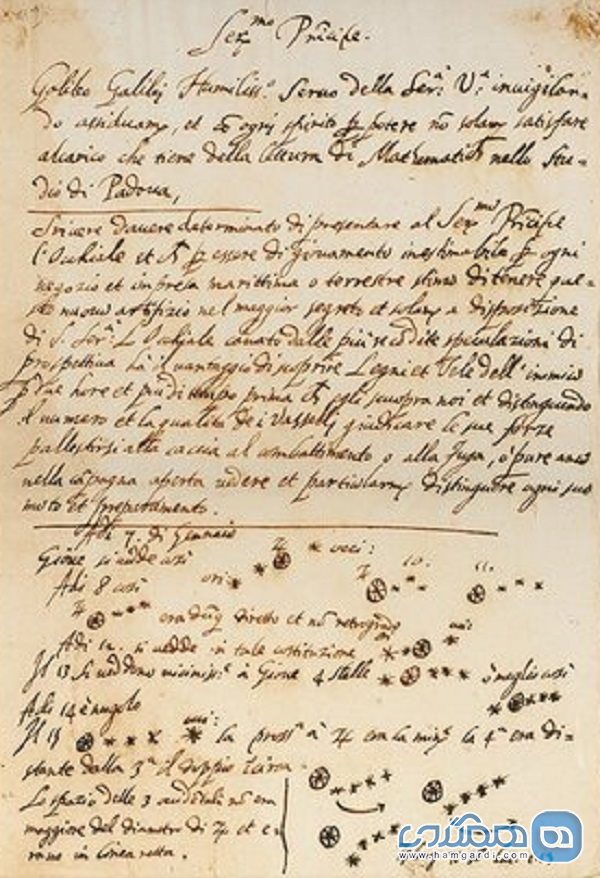 Ser.mo Principe.
Galileo Galilei Humiliss.o Servo della Ser.a V.a invigilan-
do assiduam.e et cō ogni spirito p potere nō solam satisfare
alcarico che tiene della lettura di Mathematich nello Stu-
dio di Padova,
Scrivere davere determinato di presentare al Ser.mo Pñcipe
l'Occhiale et p essere di giovamento inestimabile p ogni
negozio et impresa marittima o terrestre stimo di tenere que-
sto nuovo artifizio nel maggior segreto et solam a disposizione
di S. Ser.a L'Occhiale cavato dalle più recōdite speculazioni di
prospettiva hà il vantaggio di scoprire Legni et Vele dell'inimico
p due hore et più di tempo prima ch egli scuopra noi et distinguendo
il numero et la qualità de i Vasselli giudicare le sue forze
pallestirsi alla caccia al combattimento o alla fuga, ò pure anco
nella cāpagna aperta vedere et particularm distinguere ogni suo
moto et preparamento.
Adi 7. di Gennaio
Giove si vedde così
Adi 8 così
10. 11.
era dūq diretto et nō retrogrado
Adi 12. si vedde in tale costituzione
Il 13 si veddono vicinissi.e à Giove 4 stelle
ò meglio così
Adi 14 è nugolo
Il 15
la pross.a à ♃ era la min.e la 4.a era di-
stante dalla 3.a il doppio
Lo spazio delle 3 nō era
maggiore del diametro di ♃ et e-
rano in linea retta.
همگردی
www.hamgardi.com